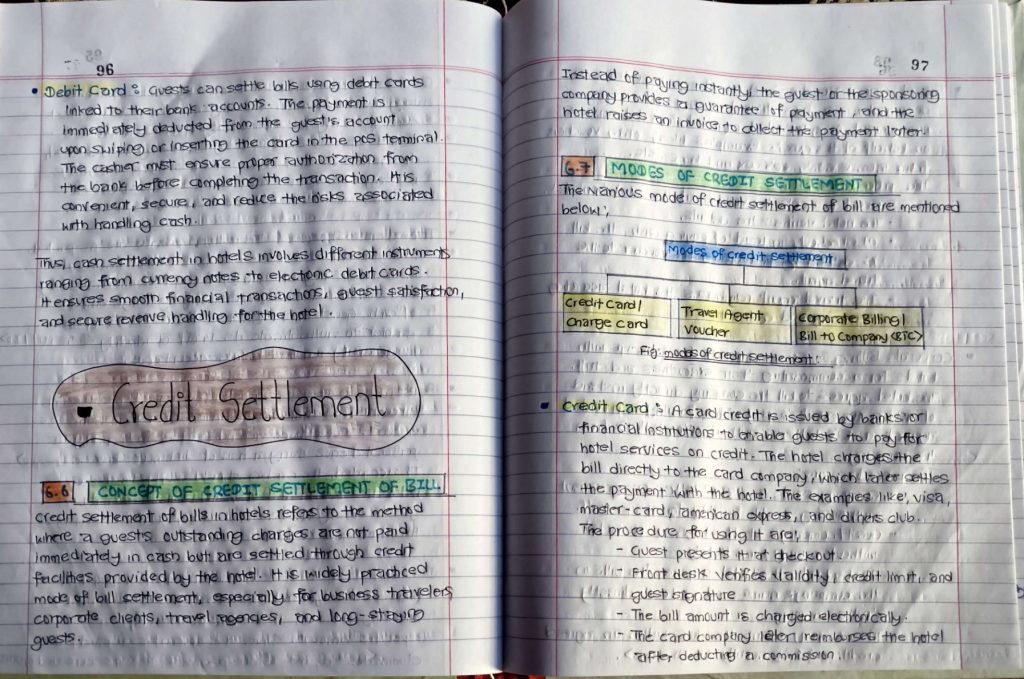 96
• Debit Card : Guests can settle bills using debit cards
linked to their bank accounts. The payment is
immediately deducted from the guest's account
upon swiping or inserting the card in the POS terminal.
The cashier must ensure proper authorization from
the bank before completing the transaction. It is
convenient, secure, and reduce the risks associated
with handling cash.
Thus, cash settlement in hotels involves different instruments
ranging from currency notes to electronic debit cards.
It ensures smooth financial transactions, guest satisfaction,
and secure revenue handling for the hotel.
Credit Settlement
6.6 CONCEPT OF CREDIT SETTLEMENT OF BILL
Credit settlement of bills in hotels refers to the method
where a guests outstanding charges are not paid
immediately in cash but are settled through credit
facilities provided by the hotel. It is widely practiced
mode of bill settlement, especially for business travelers
corporate clients, travel agencies, and long-staying
guests.
97
Instead of paying instantly, the guest or the sponsoring
company provides a guarantee of payment, and the
hotel raises an invoice to collect the payment later.
6.7 MODES OF CREDIT SETTLEMENT
The various mode of credit settlement of bill are mentioned
below;
Modes of credit settlement
Credit Card/
Charge card
Travel Agent
Voucher
Corporate Billing/
Bill to Company (BTC)
Fig: modes of credit settlement.
• Credit Card : A card credit is issued by banks or
financial institutions to enable guests to pay for
hotel services on credit. The hotel charges the
bill directly to the card company, which later settles
the payment with the hotel. The examples like, visa,
master-card, american express, and diners club.
The procedure for using it are,
- Guest presents it at checkout
- Front desk verifies validity, credit limit, and
guest signature
- The bill amount is charged electronically.
- The card company later reimburses the hotel
after deducting a commission.